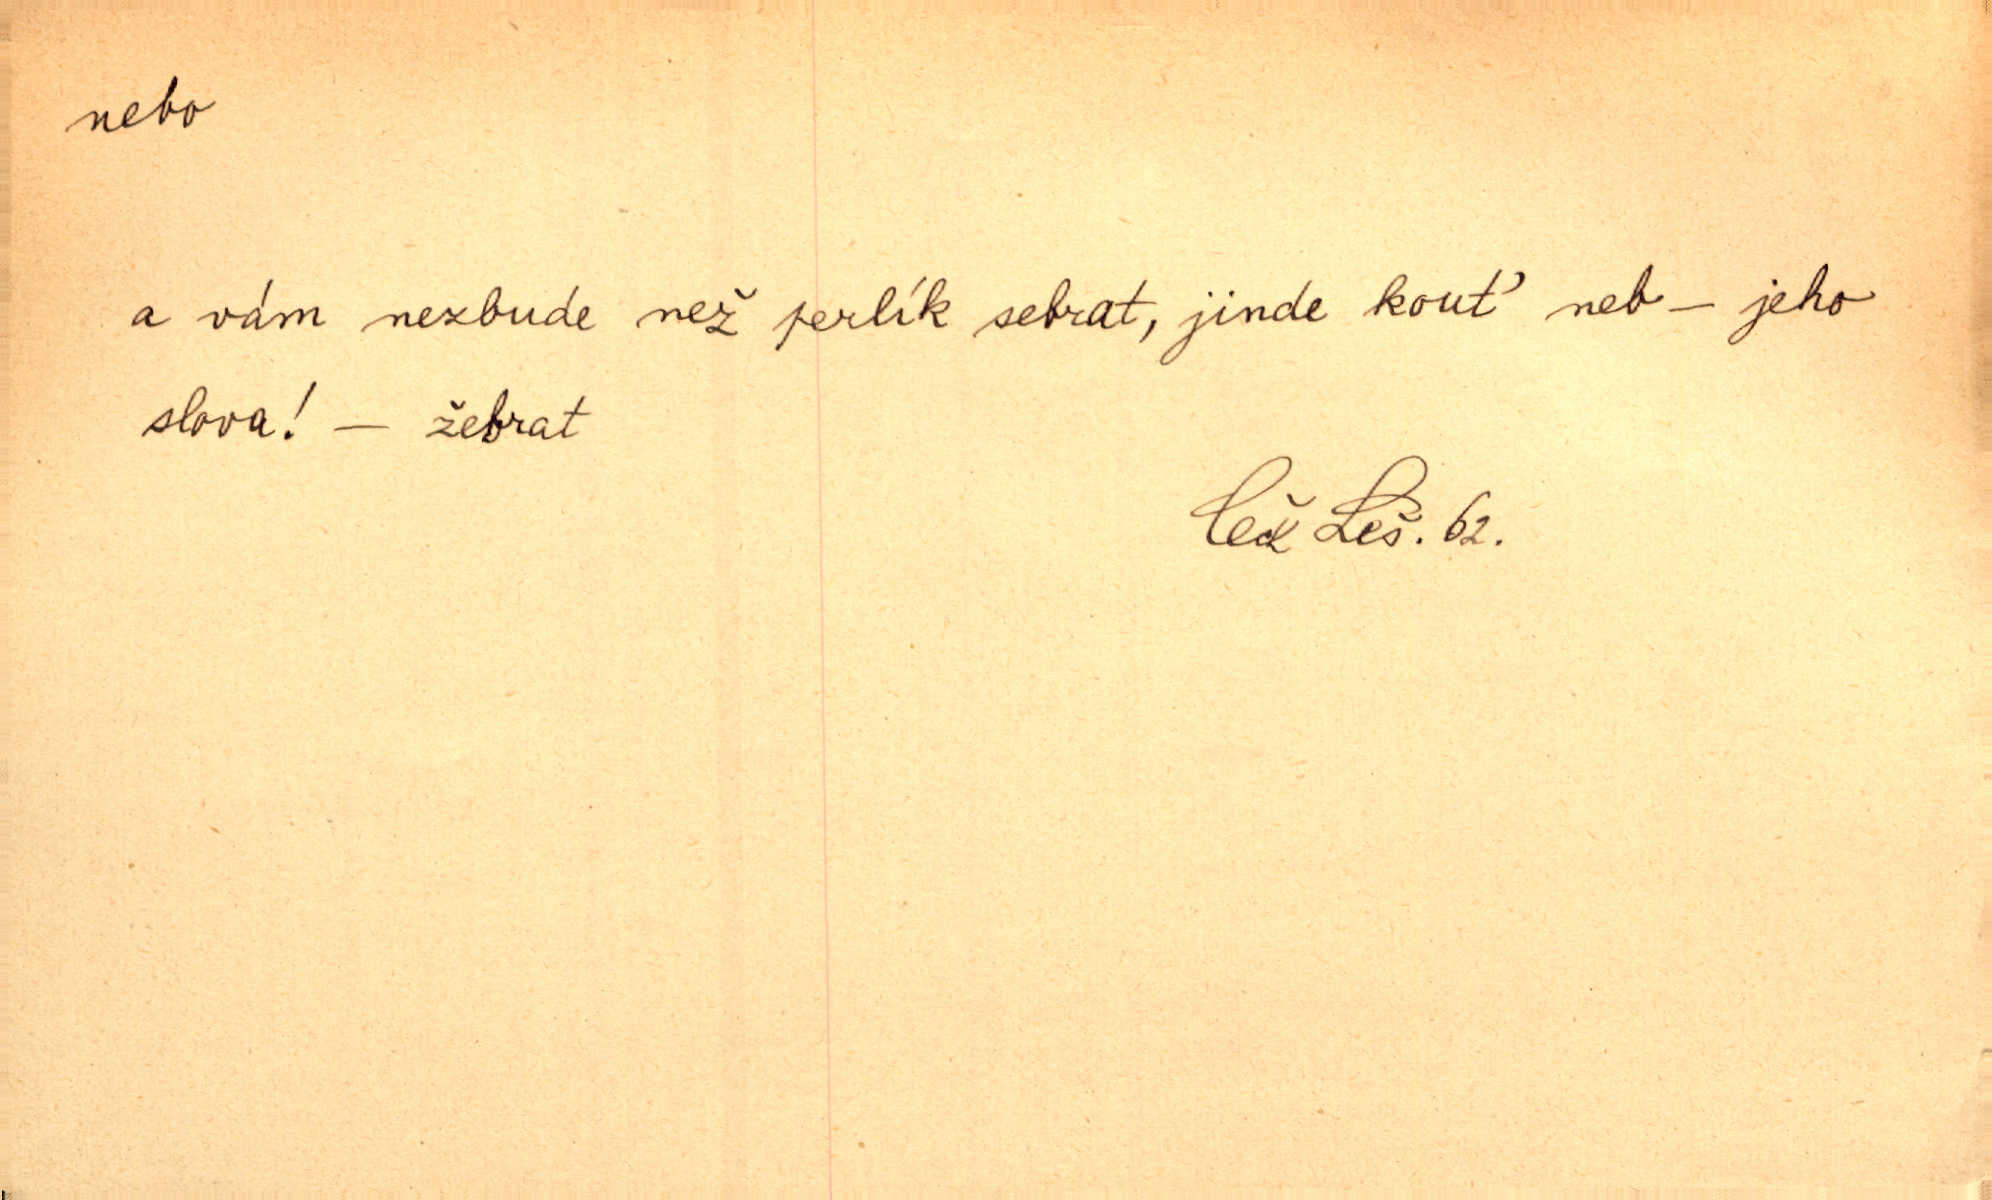 nebo
a vám nezbude než perlík sebrat, jinde kouť neb – jeho
slova! – žebrat
Leš. 62.